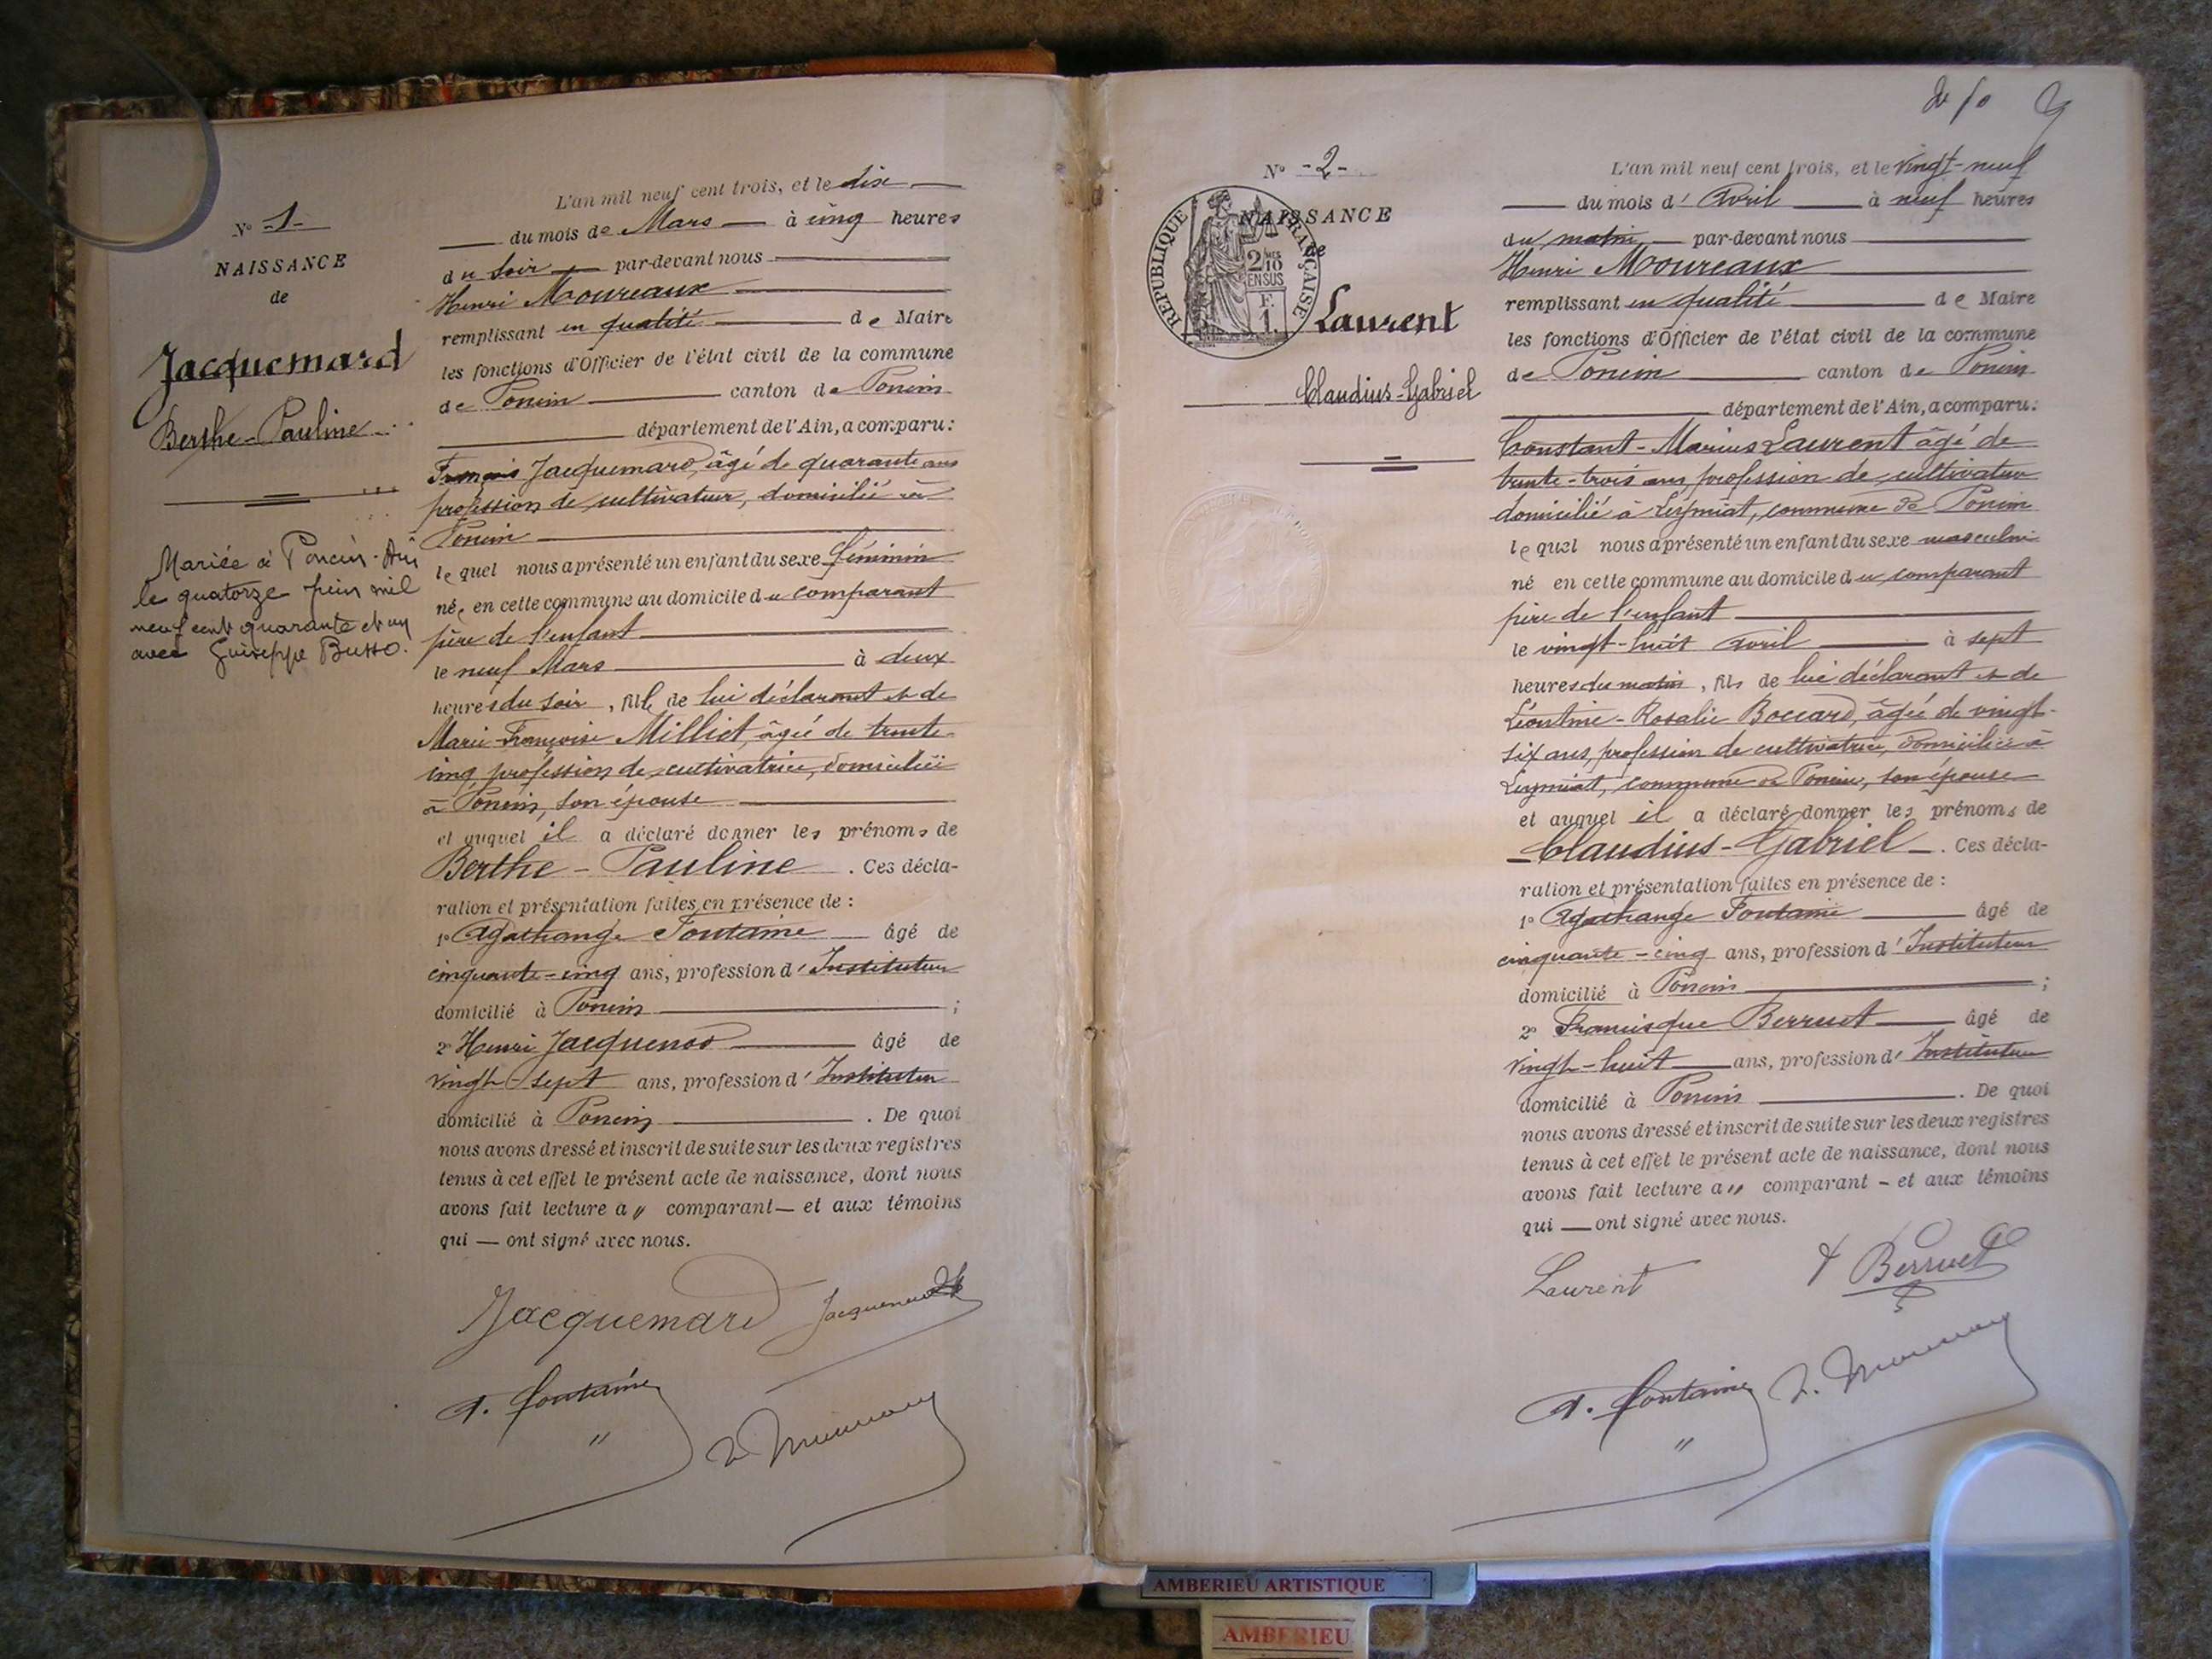 N° -1-
NAISSANCE
de
Jacquemard
Berthe-Pauline
Mariée à Poncin - Ain
le quatorze juin mil
neuf cent quarante et un
avec Guiseppe Busso.
L'an mil neuf cent trois, et le dix
du mois de Mars à cinq heures
du soir par-devant nous
Henri Moureaux
remplissant en qualité de Maire
les fonctions d'Officier de l'état civil de la commune
de Poncin canton de Poncin
département de l'Ain, a comparu:
François Jacquemard, âgé de quarante ans
profession de cultivateur, domicilié à
Poncin
lequel nous a présenté un enfant du sexe féminin
née en cette commune au domicile du comparant
père de l'enfant
le neuf Mars à deux
heures du soir, fille de lui déclarant et de
Marie-Françoise Milliet, âgée de trente-
cinq profession de cultivatrice, domiciliée
à Poncin, son épouse
et auquel il a déclaré donner les prénoms de
Berthe - Pauline. Ces décla-
ration et présentation faites en présence de :
1° Agathange Fontaine âgé de
cinquante-cinq ans, profession d'Instituteur
domicilié à Poncin ;
2° Henri Jacquenod âgé de
vingt-sept ans, profession d'Instituteur
domicilié à Poncin. De quoi
nous avons dressé et inscrit de suite sur les deux registres
tenus à cet effet le présent acte de naissance, dont nous
avons fait lecture a " comparant — et aux témoins
qui — ont signé avec nous.
Jacquemard
A. Fontaine
"
2e fo
N° -2-
NAISSANCE
de
RÉPUBLIQUE FRANÇAISE
2/10
EN SUS
F.
1
Laurent
Claudius-Gabriel
L'an mil neuf cent trois, et le vingt-neuf
du mois d'Avril à neuf heures
du matin par-devant nous
Henri Moureaux
remplissant en qualité de Maire
les fonctions d'Officier de l'état civil de la commune
de Poncin canton de Poncin
département de l'Ain, a comparu:
Constant-Marius Laurent âgé de
trente-trois ans, profession de cultivateur
domicilié à Leymiat, commune de Poncin
lequel nous a présenté un enfant du sexe masculin
né en cette commune au domicile du comparant
père de l'enfant
le vingt-huit avril à sept
heures du matin, fils de lui déclarant et de
Léontine-Rosalie Boccard, âgée de vingt-
six ans, profession de cultivatrice, domiciliée à
Leymiat, commune de Poncin, son épouse
et auquel il a déclaré donner les prénoms de
- Claudius-Gabriel -. Ces décla-
ration et présentation faites en présence de :
1° Agathange Fontaine âgé de
cinquante-cinq ans, profession d'Instituteur
domicilié à Poncin ;
2° Francisque Berruet âgé de
vingt-huit ans, profession d'Instituteur
domicilié à Poncin. De quoi
nous avons dressé et inscrit de suite sur les deux registres
tenus à cet effet le présent acte de naissance, dont nous
avons fait lecture a " comparant - et aux témoins
qui — ont signé avec nous.
Laurent F Berruet
A. Fontaine
"
AMBERIEU ARTISTIQUE
AMBERIEU